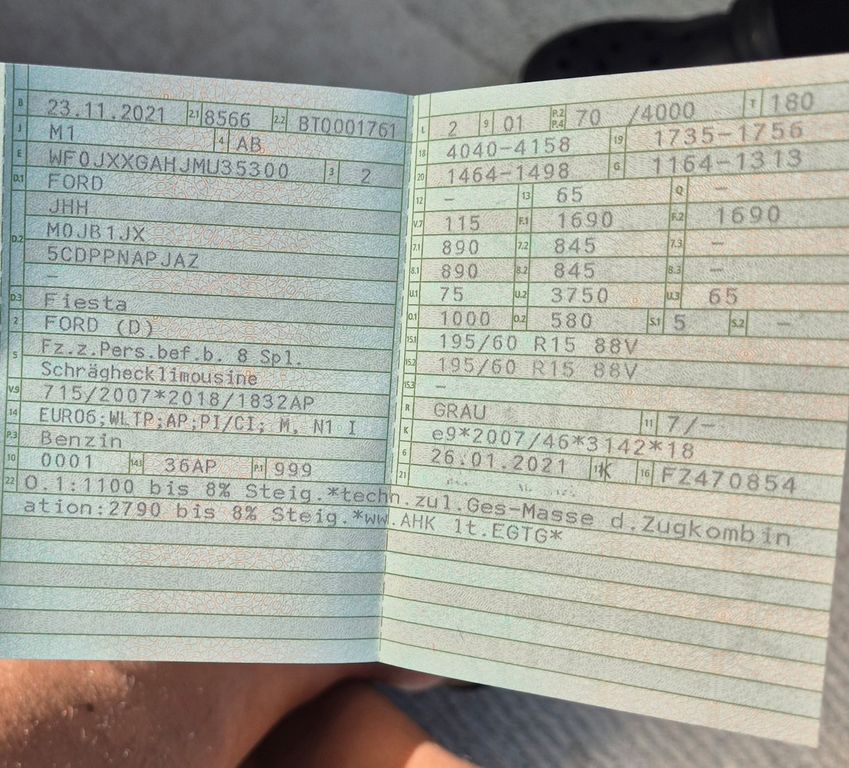 B 23.11.2021 2.1 8566 2.2 BT0001761
J M1 4 AB
E WF0JXXGAHJMU35300 3 2
D.1 FORD
JHH
D.2 M0JB1JX
5CDPPNAPJAZ
–
D.3 Fiesta
2 FORD (D)
5 Fz.z.Pers.bef.b. 8 Spl.
Schräghecklimousine
V.9 715/2007*2018/1832AP
14 EURO6;WLTP;AP;PI/CI; M, N1 I
P.3 Benzin
10 0001 14.1 36AP P.1 999
L 2 9 01 P.2 P.4 70 /4000 T 180
18 4040-4158 19 1735-1756
20 1464-1498 G 1164-1313
12 – 13 65 Q –
V.7 115 F.1 1690 F.2 1690
7.1 890 7.2 845 7.3 –
8.1 890 8.2 845 8.3 –
U.1 75 U.2 3750 U.3 65
O.1 1000 O.2 580 S.1 5 S.2 –
15.1 195/60 R15 88V
15.2 195/60 R15 88V
15.3 –
R GRAU 11 7/-
K e9*2007/46*3142*18
6 26.01.2021 17 K 16 FZ470854
21
22 O.1:1100 bis 8% Steig.*techn.zul.Ges-Masse d.Zugkombin
ation:2790 bis 8% Steig.*ww.AHK lt.EGTG*